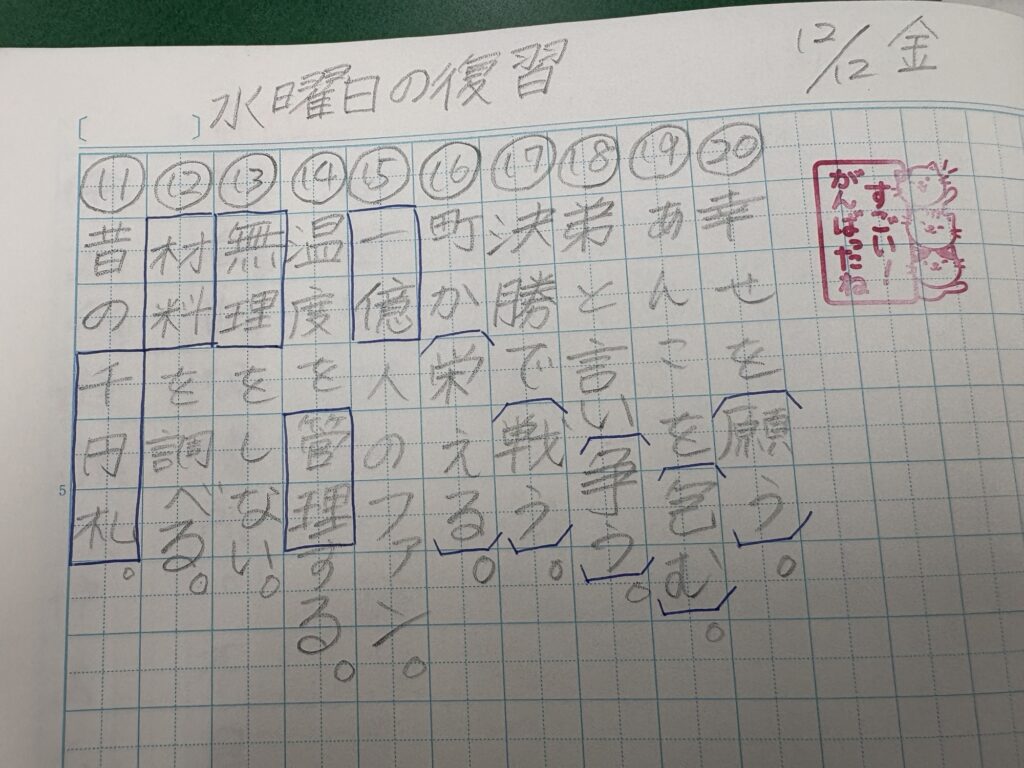 12/12 金
〔 〕水曜日の復習
⑪昔の千円札。
⑫材料を調べる。
⑬無理をしない。
⑭温度を管理する。
⑮一億人のファン。
⑯町が栄える。
⑰決勝で戦う。
⑱弟と言い争う。
⑲あんこを包む。
⑳幸せを願う。
すごい!
がんばったね
5